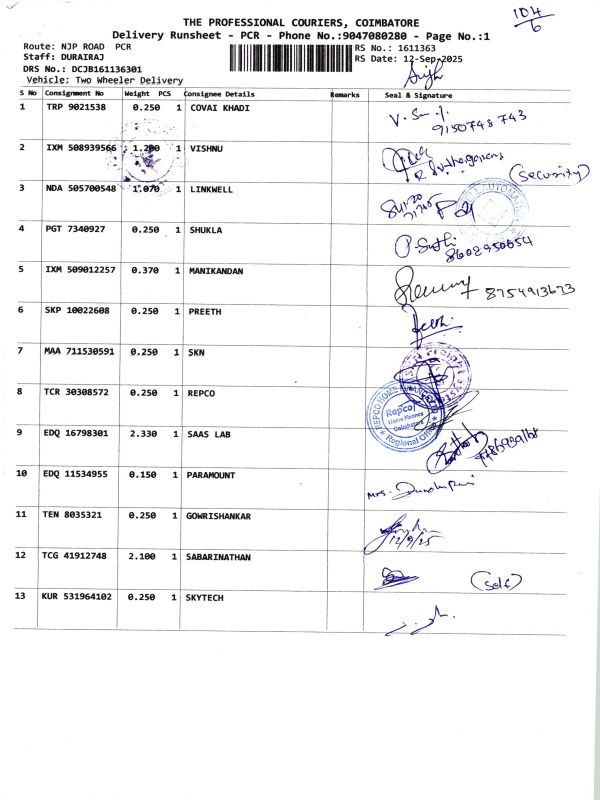 THE PROFESSIONAL COURIERS, COIMBATORE
104
6
Delivery Runsheet - PCR - Phone No.:9047080280 - Page No.:1
Route: NJP ROAD PCR
RS No.: 1611363
Staff: DURAIRAJ
RS Date: 12-Sep-2025
DRS No.: DCJB161136301
Vehicle: Two Wheeler Delivery
S No Consignment No Weight PCS Consignee Details Remarks Seal & Signature
1 TRP 9021538 0.250 1 COVAI KHADI
9150748743
2 IXM 508939566 1.200 1 VISHNU
(Security)
3 NDA 505700548 1.070 1 LINKWELL
4 PGT 7340927 0.250 1 SHUKLA
8602950654
5 IXM 509012257 0.370 1 MANIKANDAN
8754913673
6 SKP 10022608 0.250 1 PREETH
7 MAA 711530591 0.250 1 SKN
8 TCR 30308572 0.250 1 REPCO
Repco
Home Finance
Coimbatore
9 EDQ 16798301 2.330 1 SAAS LAB
10 EDQ 11534955 0.150 1 PARAMOUNT
11 TEN 8035321 0.250 1 GOWRISHANKAR
12/9/25
12 TCG 41912748 2.100 1 SABARINATHAN
(Self)
13 KUR 531964102 0.250 1 SKYTECH